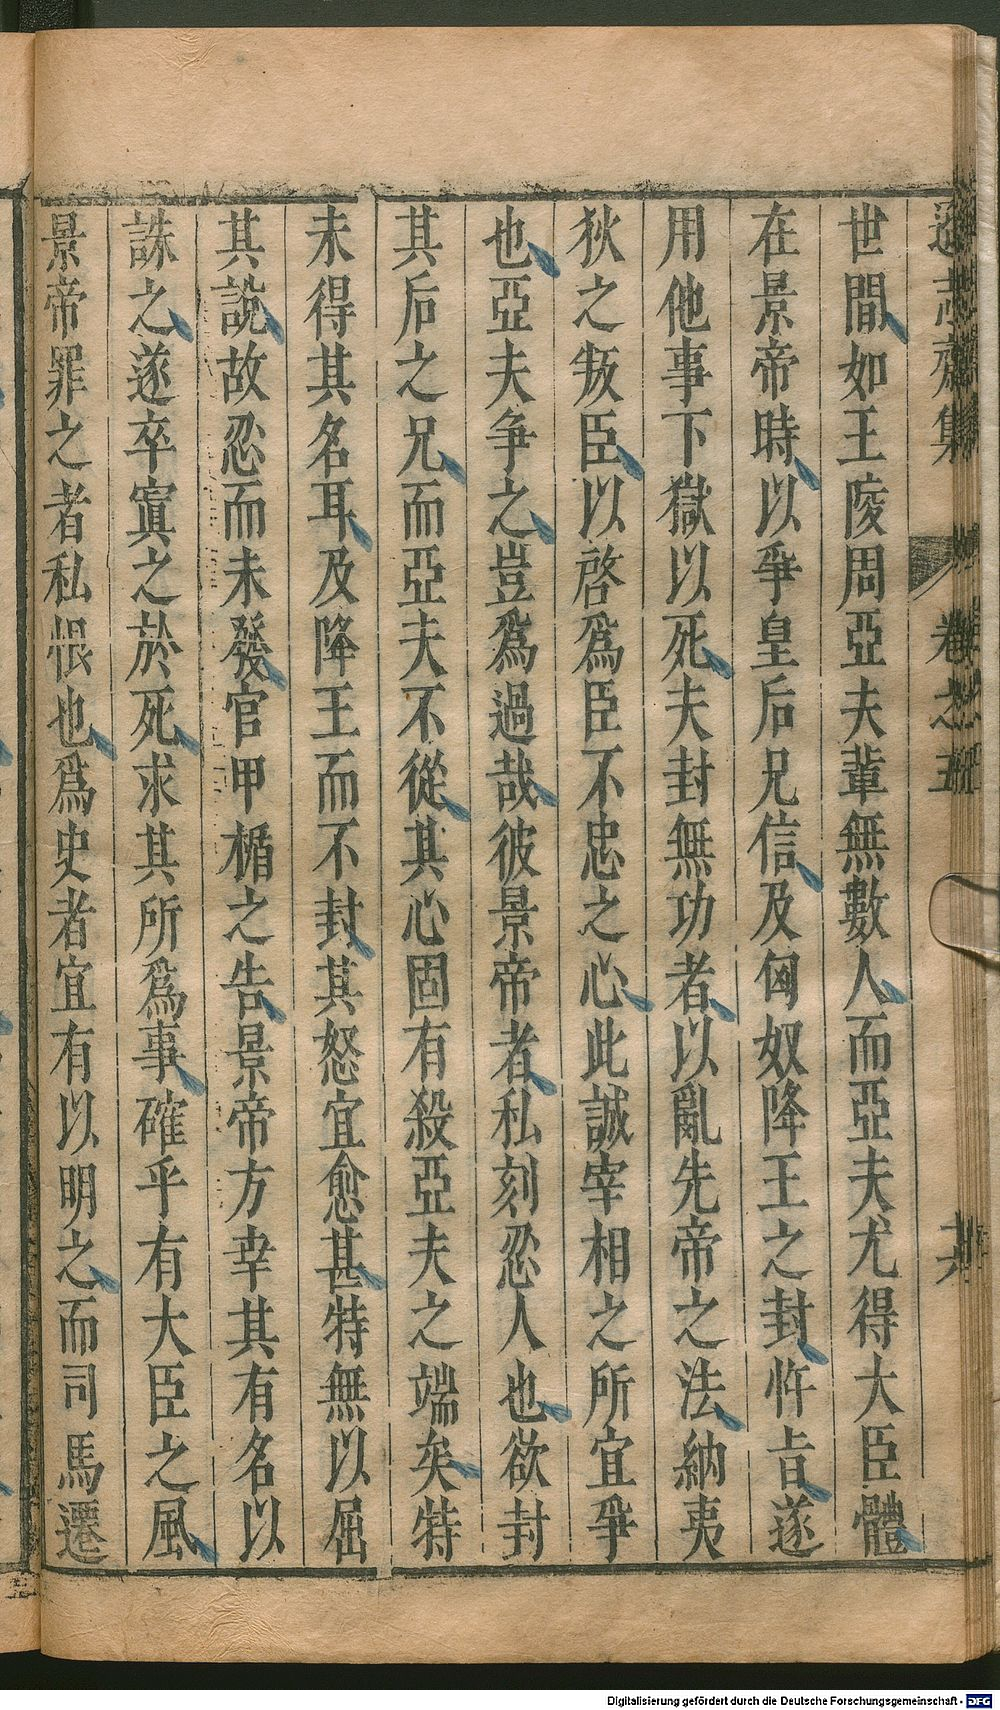 世間如王陵周亞夫輩無數人而亞夫尤得大臣體
在景帝時以爭皇后兄信及匈奴降王之封忤㫖遂
用他事下獄以死夫封無功者以亂先帝之法納夷
狄之叛臣以啓爲臣不忠之心此誠宰相之所宜爭
也亞夫争之豈爲過哉彼景帝者私刻忍人也欲封
其后之兄而亞夫不從其心固有殺亞夫之端矣特
未得其名耳及降王而不封其怒宜愈甚特無以屈
其說故忍而未發官甲楯之告景帝方幸其有名以
誅之遂卒寘之於死求其所爲事確乎有大臣之風
景帝罪之者私恨也爲史者宜有以明之而司馬遷
遜志齋集
卷之五
Digitalisierung gefördert durch die Deutsche Forschungsgemeinschaft - DFG